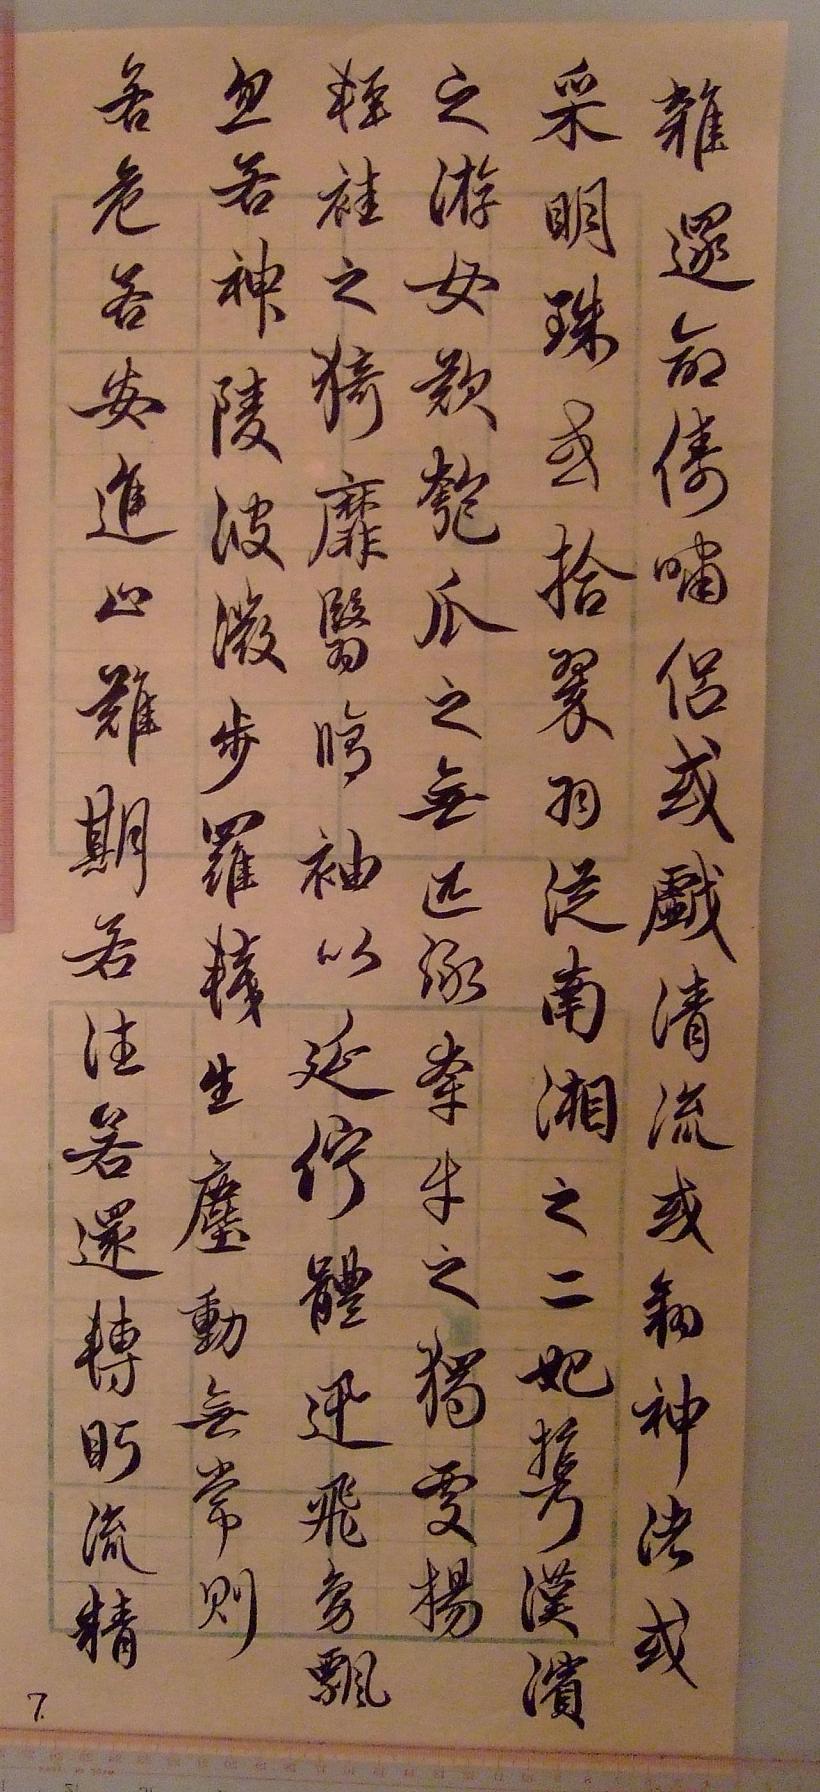 雜遝命儔嘯侶或戲清流或翔神渚或
采明珠或拾翠羽從南湘之二妃攜漢濱
之游女歎匏瓜之無匹詠牽牛之獨處揚
輕袿之猗靡翳脩袖以延佇體迅飛鳧飄
忽若神陵波微步羅韈生塵動無常則
若危若安進止難期若往若還轉眄流精
7.